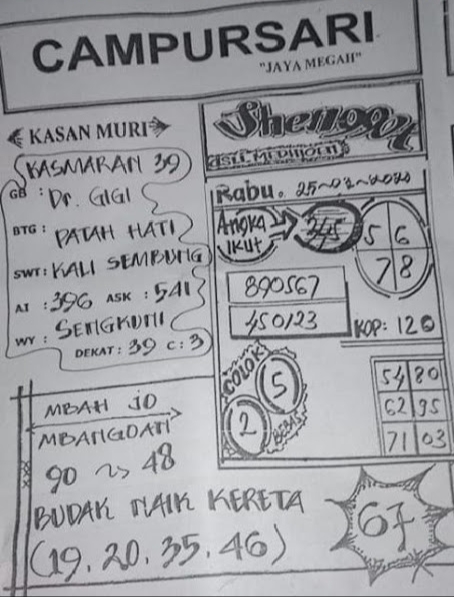 CAMPURSARI
"JAYA MEGAH"
KASAN MURI
KASMARAN 39
GB : Dr. GIGI
BTG : PATAH HATI
SWT : KALI SEMBUNG
AI : 396 ASK : 541
WY : SENGKUNI
DEKAT : 39 C : 3
Rabu. 25-02-2020
ANGKA IKUT
345
5 6
7 8
890567
450123
KOP: 120
COLOK
5
2
BEBAS
54 80
62 95
71 03
MBAH JO
MBANGDAN
90 48
BUDAK NAIK KERETA
(19, 20, 35, 46)
67